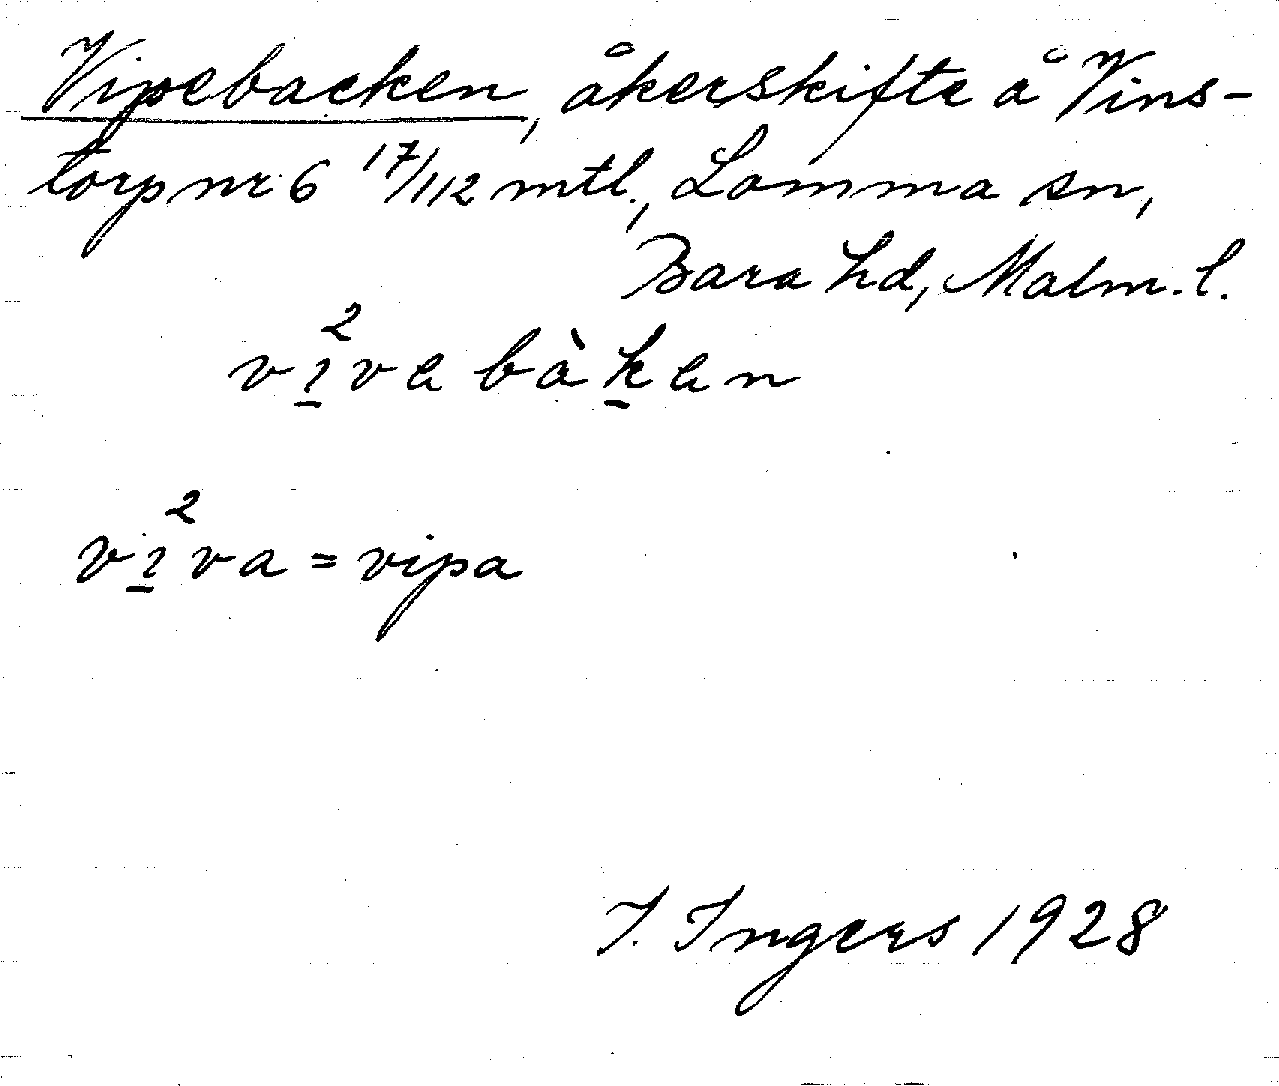 Vipebacken, åkerskifte å Vins-
torp nr 6 17/112 mtl., Lomma sn,
Bara hd, Malm. l.
vı̱²vɐ bàḵɐn
vı̱²va = vipa
I. Ingers 1928